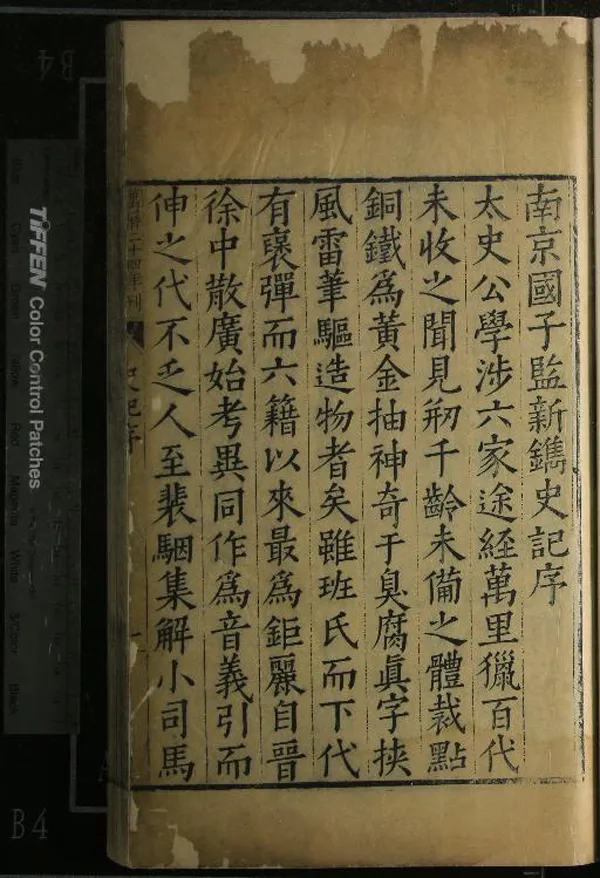 南京國子監新鐫史記序
太史公學涉六家途經萬里獵百代
未收之聞見剏千齡未備之體裁點
銅鐵爲黃金抽神奇于臭腐眞字挾
風雷筆驅造物者矣雖班氏而下代
有襃彈而六籍以來最爲鉅麗自晉
徐中散廣始考異同作爲音義引而
伸之代不乏人至裴駰集解小司馬
萬曆二十四年刊
史記序
一
TIFFEN Color Control Patches
Blue Cyan Green Yellow Red Magenta White 3/Color Black
B4
B4